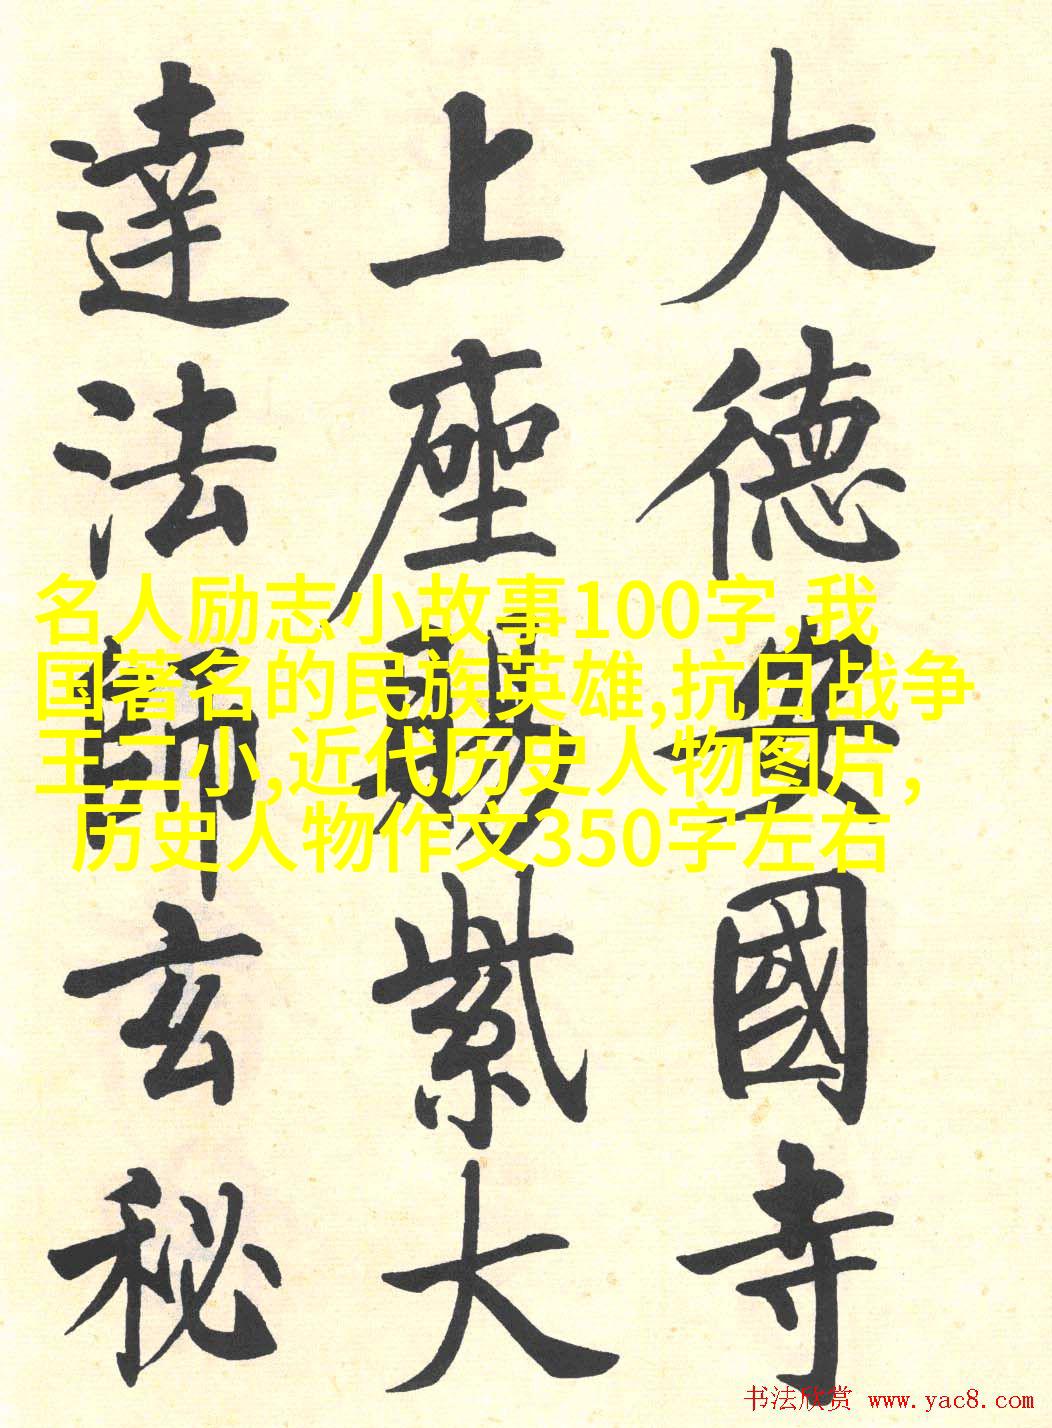 大德安國寺
上座賜紫大
達法師玄秘
名人励志小故事100字,我
国著名的民族英雄,抗日战争
王二小,近代历史人物图片,
历史人物作文350字左右
书法欣赏 www.yac8.com